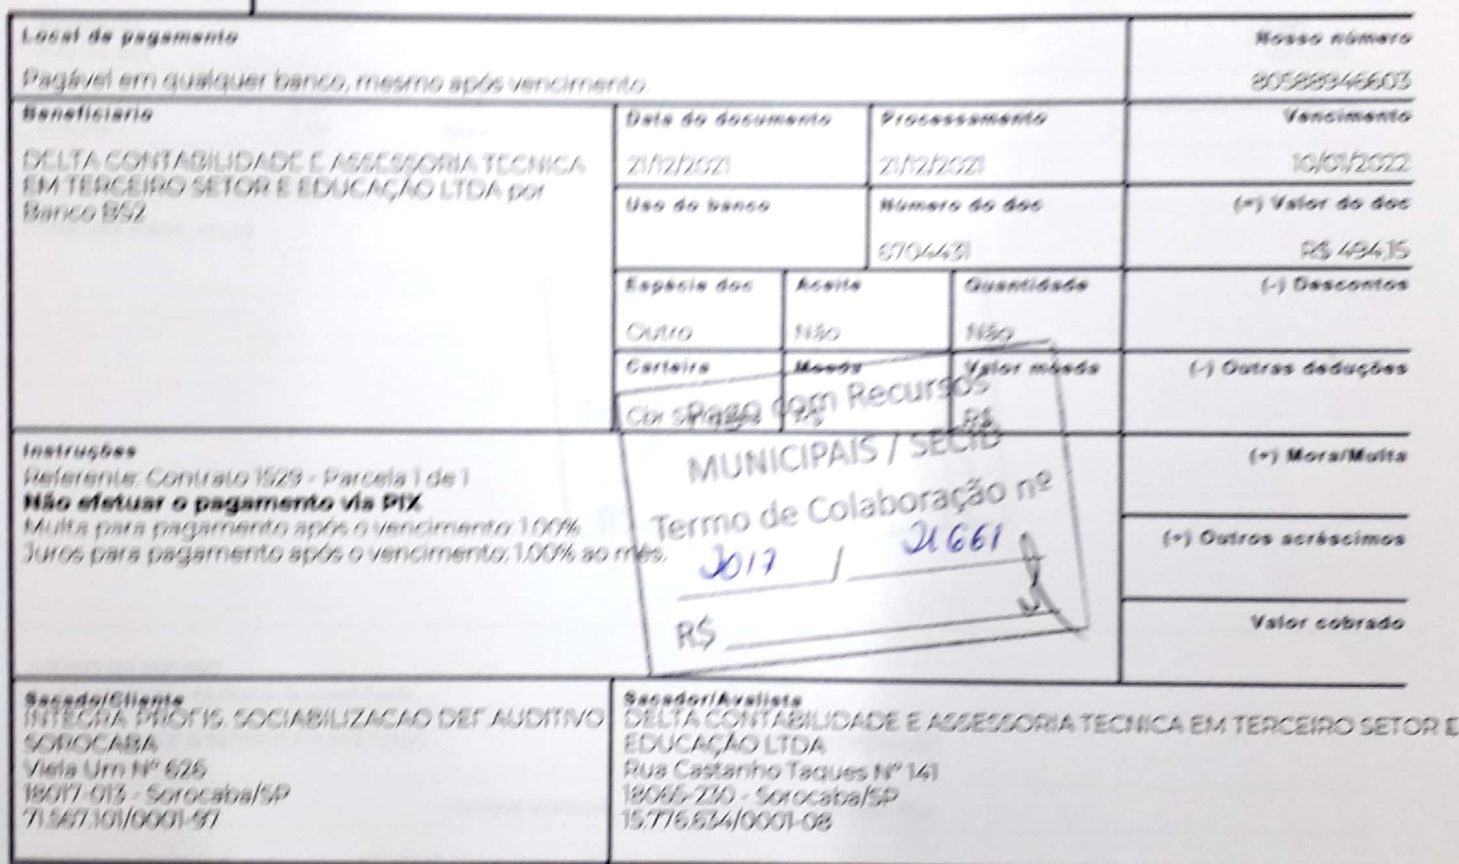 Local de pagamento
Pagável em qualquer banco, mesmo após vencimento.
Nosso número
80588946603
Beneficiario
DELTA CONTABILIDADE E ASSESSORIA TECNICA
EM TERCEIRO SETOR E EDUCAÇÃO LTDA por
Banco BS2
Data do documento
21/12/2021
Processamento
21/12/2021
Vencimento
10/01/2022
Uso do banco
Número do doc
6704431
(=) Valor do doc
R$ 494,15
Espécie doc
Outro
Aceite
Não
Quantidade
Não
(-) Descontos
Carteira
Cbr
Moeda
R$
Valor moeda
R$
(-) Outras deduções
Instruções
Referente: Contrato 1529 - Parcela 1 de 1
Não efetuar o pagamento via PIX
Multa para pagamento após o vencimento: 1.00%
Juros para pagamento após o vencimento: 1.00% ao mês.
Pago com Recursos
MUNICIPAIS / SECID
Termo de Colaboração nº
2017 / 21661
R$
(+) Mora/Multa
(+) Outros acréscimos
Valor cobrado
Sacado/Cliente
INTEGRA PROFIS. SOCIABILIZACAO DEF AUDITIVO
SOROCABA
Viela Um Nº 626
18017-013 - Sorocaba/SP
71.567.101/0001-97
Sacador/Avalista
DELTA CONTABILIDADE E ASSESSORIA TECNICA EM TERCEIRO SETOR E
EDUCAÇÃO LTDA
Rua Castanho Taques Nº 141
18065-230 - Sorocaba/SP
15.776.634/0001-08